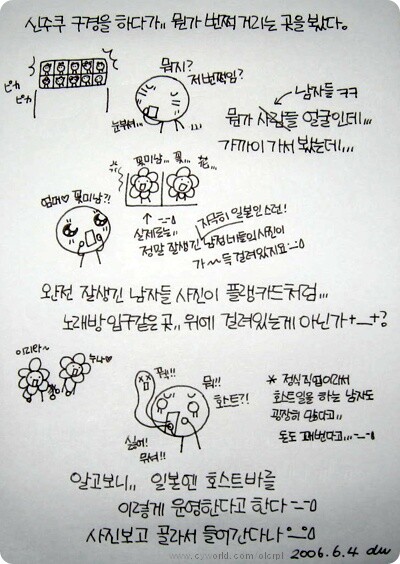 신주쿠 구경을 하다가,, 뭔가 번쩍 거리는 곳을 봤다.
삐까
삐까
뭐지?
저 번쩍임?
눈부셔...
남자들 ㅋㅋ
뭔가 사람들 얼굴인데...
가까이 가서 봤는데...
꽃미남... 꽃... 花...
엄머♡ 꽃미남?!
지극히 일본인스런!
실제로는,,
정말 잘생긴 남정네들의 사진이
가~득 걸려있지요
완전 잘생긴 남자들 사진이 플랭카드처럼...
노래방 입구같은 곳,, 위에 걸려있는게 아닌가 +_+?
이리와~
누나♥
꾸웩!!
뭐!!
호스트?!
싫어!
무셔!!
* 정식직업이라서
호스트일을 하는 남자도
굉장히 많다고,,
돈도 꽤번다고...
알고보니,, 일본엔 호스트바를
이렇게 운영한다고 한다
사진보고 골라서 들어간다나
www.cyworld.com/olcrpl
2006.6.4 dw